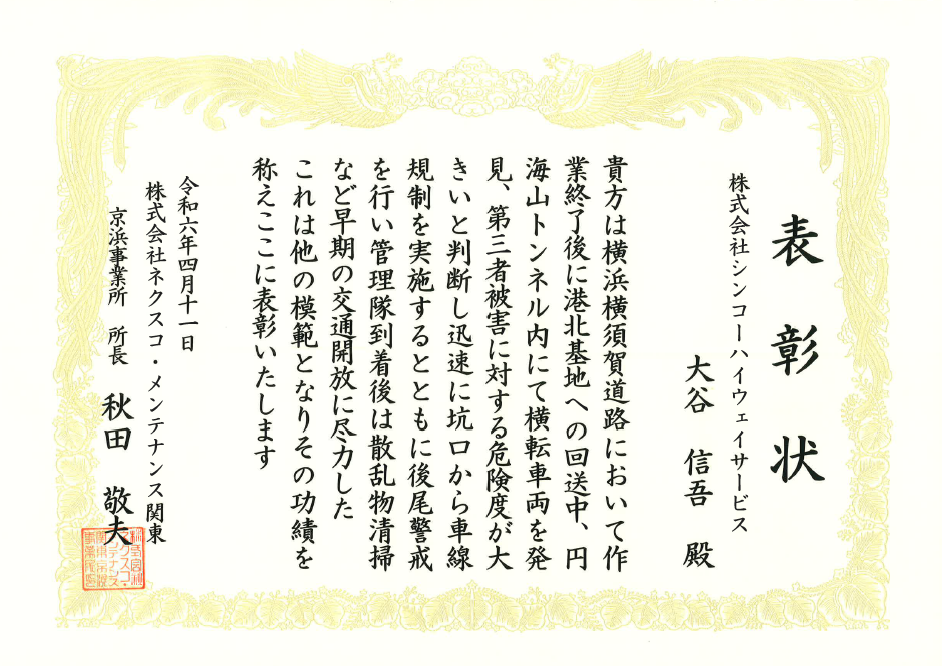 表彰状
株式会社シンコーハイウェイサービス
大谷 信吾 殿
貴方は横浜横須賀道路において作
業終了後に港北基地への回送中、円
海山トンネル内にて横転車両を発
見、第三者被害に対する危険度が大
きいと判断し迅速に坑口から車線
規制を実施するとともに後尾警戒
を行い管理隊到着後は散乱物清掃
など早期の交通開放に尽力した
これは他の模範となりその功績を
称えここに表彰いたします
令和六年四月十一日
株式会社ネクスコ・メンテナンス関東
京浜事業所 所長 秋田 敬夫